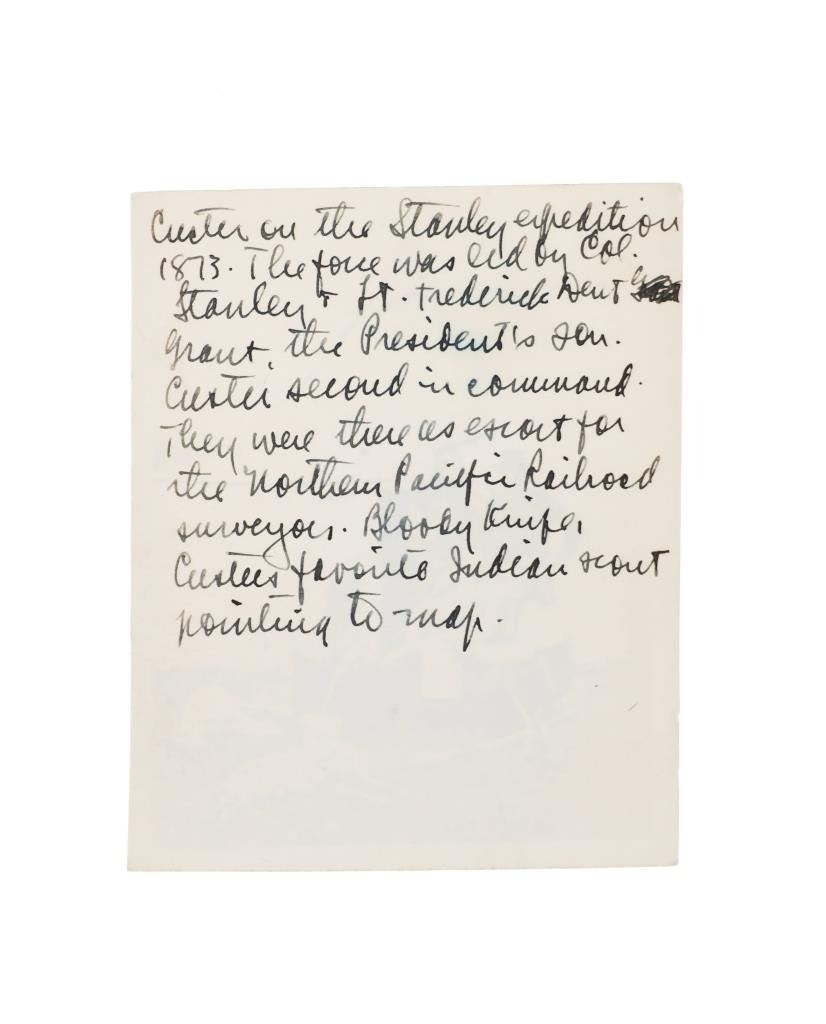 Custer on the Stanley expedition
1873. The force was led by Col.
Stanley + Lt. Frederick Dent
Grant, the President's son.
Custer second in command.
They were there as escort for
the Northern Pacific Railroad
surveyors. Bloody Knife,
Custers favorite Indian scout
pointing to map.